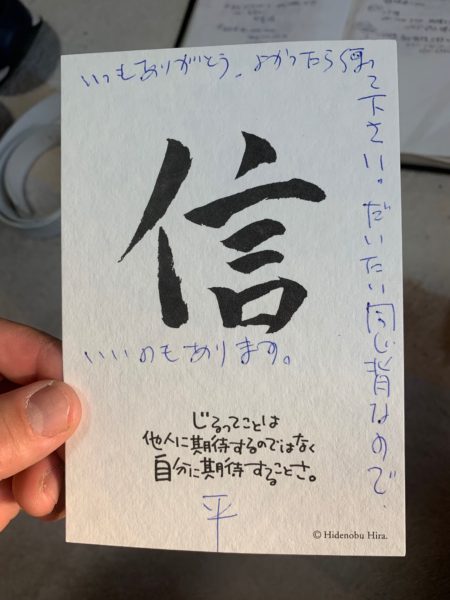 いつもありがとう。よかったら
て下さい。だいたい同じ背なので、
信
いいのもあります。
じるってことは
他人に期待するのではなく
自分に期待することさ。
平
© Hidenobu Hira.